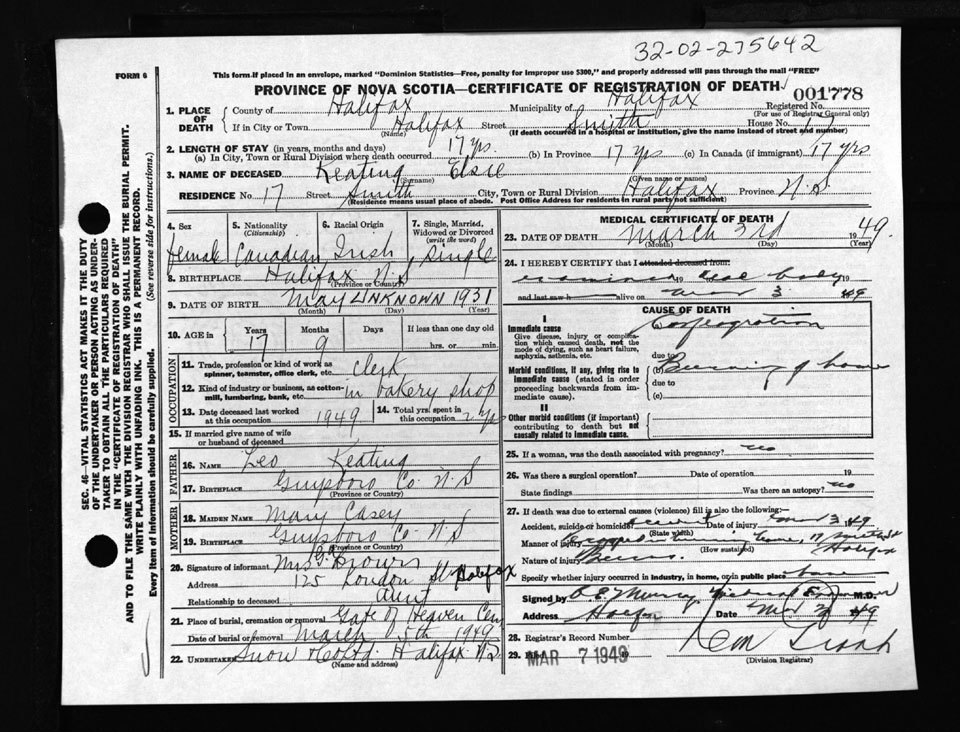 32-02-275642
FORM 6
This form if placed in an envelope, marked "Dominion Statistics—Free, penalty for improper use $300," and properly addressed will pass through the mail "FREE"
PROVINCE OF NOVA SCOTIA—CERTIFICATE OF REGISTRATION OF DEATH
001778
1. PLACE OF DEATH
County of Halifax Municipality of Halifax Registered No.
(For use of Registrar General only)
If in City or Town Halifax Street Smith House No. 17
(Name) (If death occurred in a hospital or institution, give the name instead of street and number)
2. LENGTH OF STAY (in years, months and days)
(a) In City, Town or Rural Division where death occurred 17 yrs. (b) In Province 17 yrs (c) In Canada (if immigrant) 17 yrs
3. NAME OF DECEASED Keating Elsie
(Surname) (Given name or names)
RESIDENCE No. 17 Street Smith City, Town or Rural Division Halifax Province N.S.
(Residence means usual place of abode. Post Office Address for residents in rural parts not sufficient)
4. Sex 5. Nationality (Citizenship) 6. Racial Origin 7. Single, Married, Widowed or Divorced (write the word)
female Canadian Irish Single
8. BIRTHPLACE Halifax N.S.
(Province or Country)
9. DATE OF BIRTH May UNKNOWN 1931
(Month) (Day) (Year)
10. AGE in Years Months Days If less than one day old
17 9 hrs. or min.
OCCUPATION
11. Trade, profession or kind of work as spinner, teamster, office clerk, etc. clerk
12. Kind of industry or business, as cotton-mill, lumbering, bank, etc. in bakery shop
13. Date deceased last worked at this occupation 1949 14. Total yrs. spent in this occupation 2 yrs
15. If married give name of wife or husband of deceased
FATHER
16. NAME Leo Keating
17. BIRTHPLACE Guysboro Co. N.S
(Province or Country)
MOTHER
18. MAIDEN NAME Mary Casey
19. BIRTHPLACE Guysboro Co N.S
(Province or Country)
20. Signature of informant Mrs G. Brown
Address 125 London St Halifax
Relationship to deceased aunt
21. Place of burial, cremation or removal Gate of Heaven Cem
Date of burial or removal March 5th 1949
22. UNDERTAKER Snow Co Ltd. Halifax N.S.
(Name and address)
MEDICAL CERTIFICATE OF DEATH
23. DATE OF DEATH March 3rd 1949
(Month) (Day) (Year)
24. I HEREBY CERTIFY that I attended deceased from:
examined 19 dead body 19
and last saw h alive on Mar 3 49
CAUSE OF DEATH
I
Immediate cause
Give disease, injury or complication which caused death, not the mode of dying, such as heart failure, asphyxia, asthenia, etc.
due to
Morbid conditions, if any, giving rise to immediate cause (stated in order proceeding backwards from immediate cause).
(b) Burning of home
due to
(c)
II
Other morbid conditions (if important) contributing to death but not causally related to immediate cause.
25. If a woman, was the death associated with pregnancy? no
26. Was there a surgical operation? Date of operation 19
State findings Was there an autopsy? no
27. If death was due to external causes (violence) fill in also the following:
Accident, suicide or homicide? Accident Date of injury Mar 3 49
(State which)
Manner of injury home, 17 Smith St Halifax
(How sustained)
Nature of injury Burns
Specify whether injury occurred in industry, in home, or in public place home
Signed by M.D.
Address Halifax Date Mar 49
28. Registrar's Record Number
29. Filed MAR 7 1949 19
(Division Registrar)
SEC. 46—VITAL STATISTICS ACT MAKES IT THE DUTY
OF THE UNDERTAKER OR PERSON ACTING AS UNDER-
TAKER TO OBTAIN ALL THE PARTICULARS REQUIRED
IN THE "CERTIFICATE OF REGISTRATION OF DEATH"
AND TO FILE THE SAME WITH THE DIVISION REGISTRAR WHO SHALL ISSUE THE BURIAL PERMIT.
WRITE PLAINLY WITH UNFADING INK. THIS IS A PERMANENT RECORD.
Every item of information should be carefully supplied. (See reverse side for instructions.)